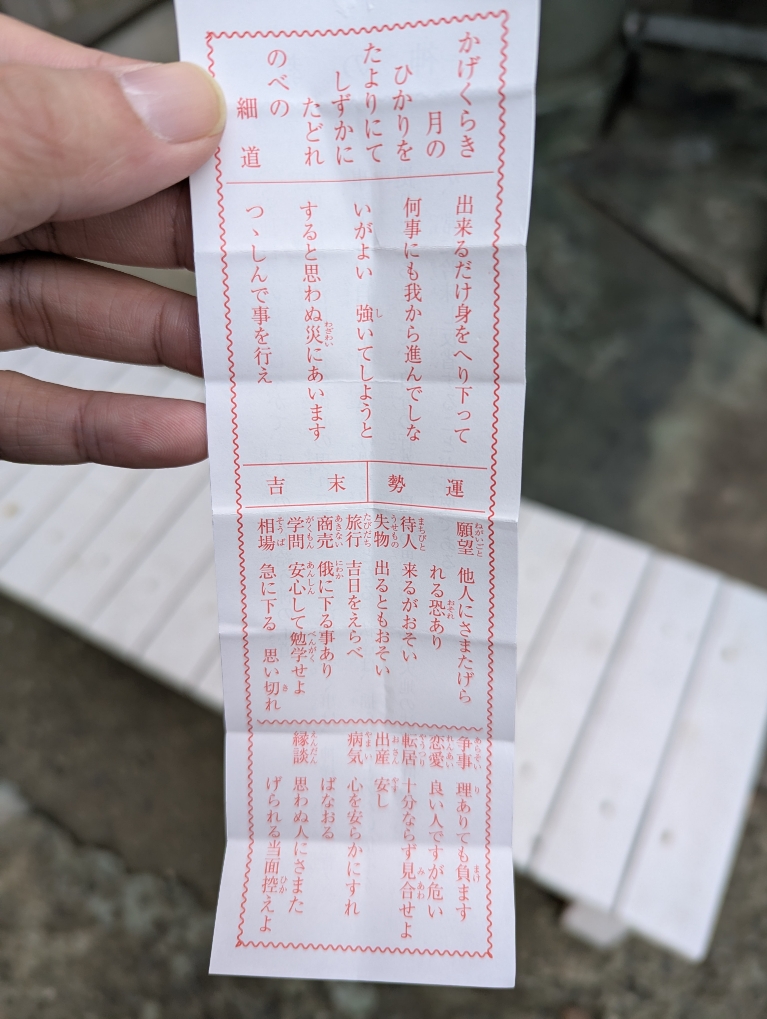 かげくらき
月の
ひかりを
たよりにて
しずかに
たどれ
のべの
細道
出来るだけ身をへり下って
何事にも我から進んでしな
いがよい　強いてしようと
すると思わぬ災にあいます
つゝしんで事を行え
運勢
末吉
願望　他人にさまたげら
れる恐あり
待人　来るがおそい
失物　出るともおそい
旅行　吉日をえらべ
商売　俄に下る事あり
学問　安心して勉学せよ
相場　急に下る　思い切れ
争事　理ありても負ます
恋愛　良い人ですが危い
転居　十分ならず見合せよ
出産　安し
病気　心を安らかにすれ
ばなおる
縁談　思わぬ人にさまた
げられる当面控えよ